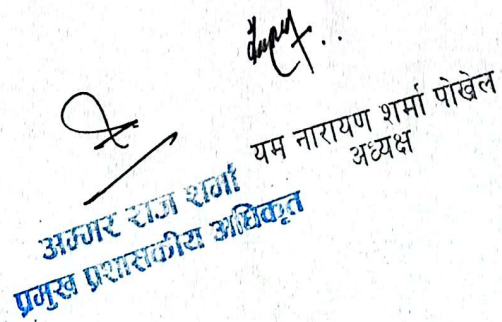 यम नारायण शर्मा पोखेल
अध्यक्ष
राज शर्मा
प्रमुख प्रशासकीय अधिकृत